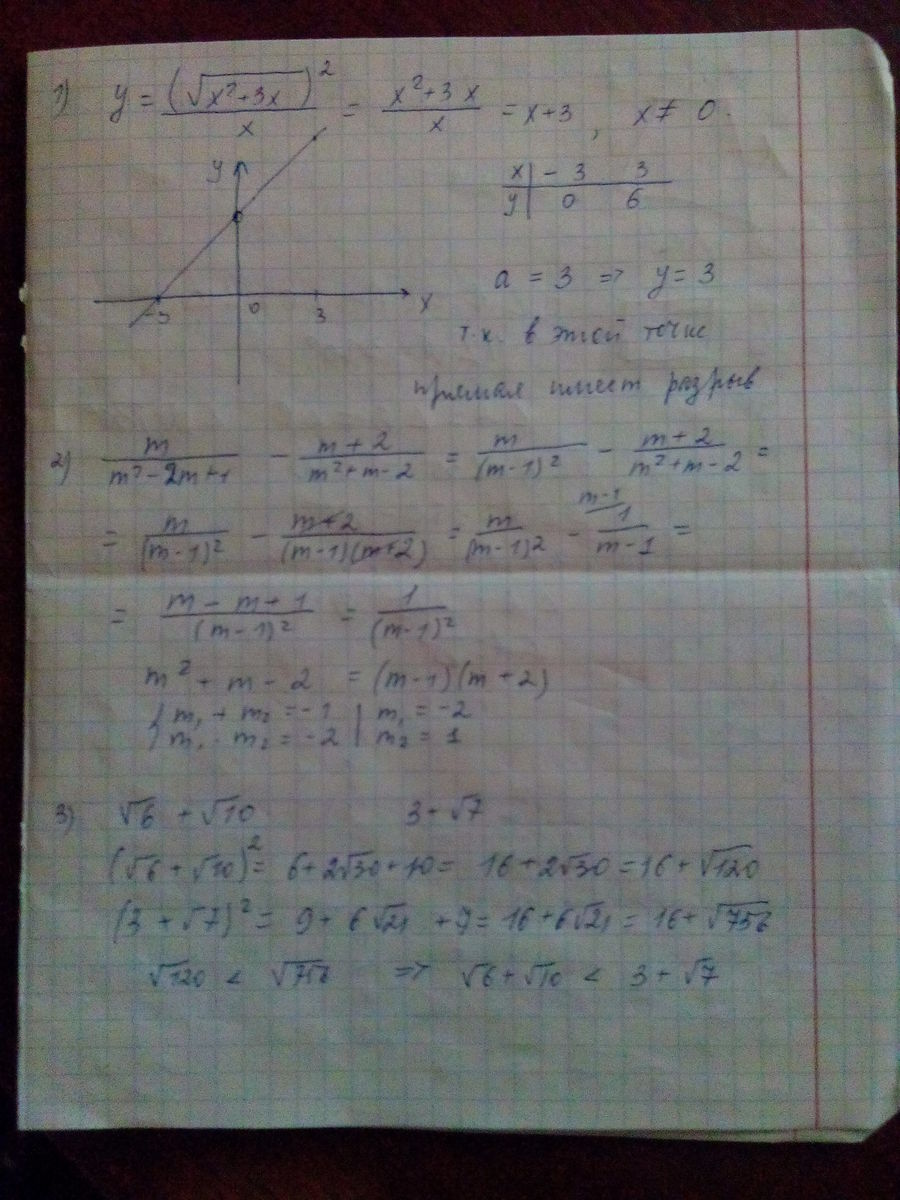 1) y = (√(x²+3x))²/x = (x²+3x)/x = x+3, x ≠ 0.
y
x | -3 3
y | 0 6
-3 0 3 x
a = 3 => y = 3
т.к. в этой точке
прямая имеет разрыв
2) m/(m²-2m+1) - (m+2)/(m²+m-2) = m/(m-1)² - (m+2)/(m²+m-2) =
= m/(m-1)² - (m+2)/((m-1)(m+2)) = m/(m-1)² - 1/(m-1) (m-1 =
= (m-m+1)/(m-1)² = 1/(m-1)²
m² + m - 2 = (m-1)(m+2)
{ m₁ + m₂ = -1 | m₁ = -2
{ m₁ · m₂ = -2 | m₂ = 1
3) √6 + √10 3+√7
(√6 + √10)² = 6+2√30+10 = 16+2√30 = 16+√120
(3+√7)² = 9+6√21 +7 = 16+6√21 = 16+√756
√120 < √756 => √6+√10 < 3+√7